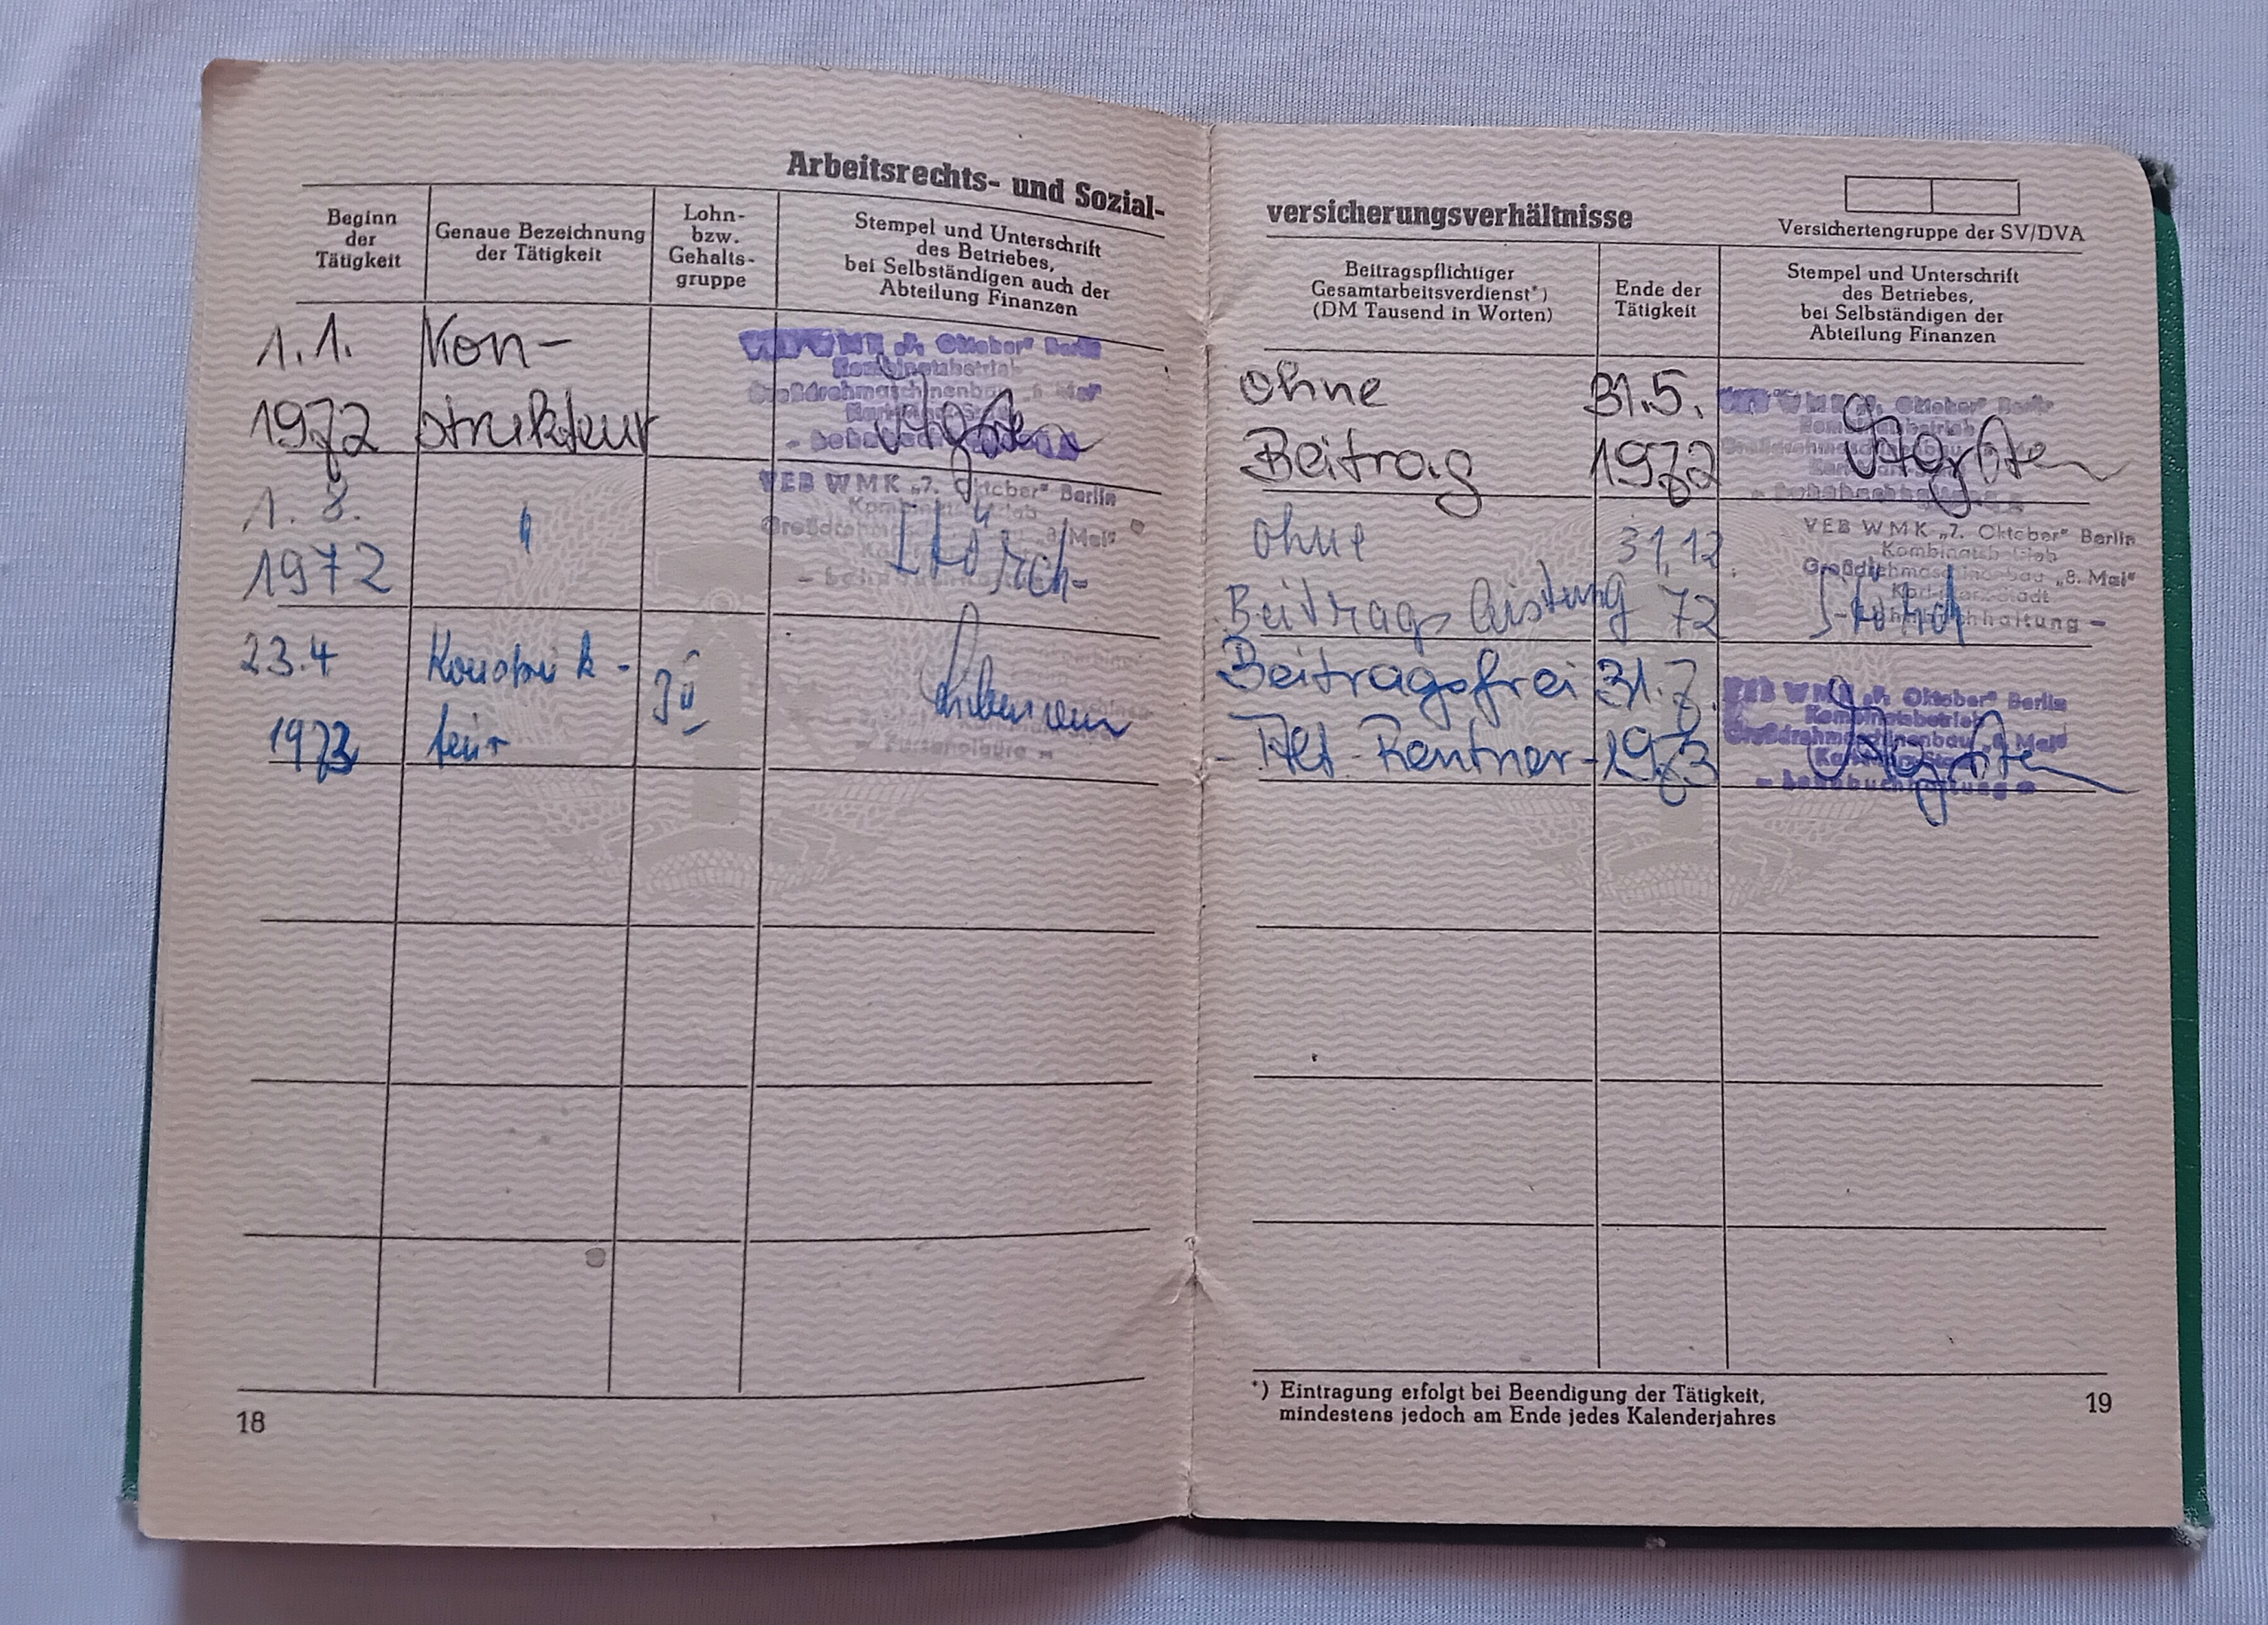 Arbeitsrechts- und Sozial-
Beginn
der
Tätigkeit
Genaue Bezeichnung
der Tätigkeit
Lohn-
bzw.
Gehalts-
gruppe
Stempel und Unterschrift
des Betriebes,
bei Selbständigen auch der
Abteilung Finanzen
1.1.
1972
Kon-
strukteur
"7. Oktober" Berlin
Kombinatsbetrieb
Großdrehmaschinenbau "8. Mai"
1. 8.
1972
"
VEB WMK „7. Oktober" Berlin
"8. Mai"
23.4
1973
Konstruk-
teur
18
versicherungsverhältnisse
Versichertengruppe der SV/DVA
Beitragspflichtiger
Gesamtarbeitsverdienst*)
(DM Tausend in Worten)
Ende der
Tätigkeit
Stempel und Unterschrift
des Betriebes,
bei Selbständigen der
Abteilung Finanzen
ohne
Beitrag
31.5.
1972
WMK "7. Oktober" Berlin
ohne
Beitragsleistung
31.12.
72
VEB WMK „7. Oktober" Berlin
Kombinatsbetrieb
Großdrehmaschinenbau „8. Mai"
Beitragsfrei
- Alt.-Rentner-
31.7.
1973
VEB WMK "7. Oktober" Berlin
Kombinatsbetrieb
Großdrehmaschinenbau "8. Mai"
- Lohnbuchhaltung -
*) Eintragung erfolgt bei Beendigung der Tätigkeit,
mindestens jedoch am Ende jedes Kalenderjahres
19